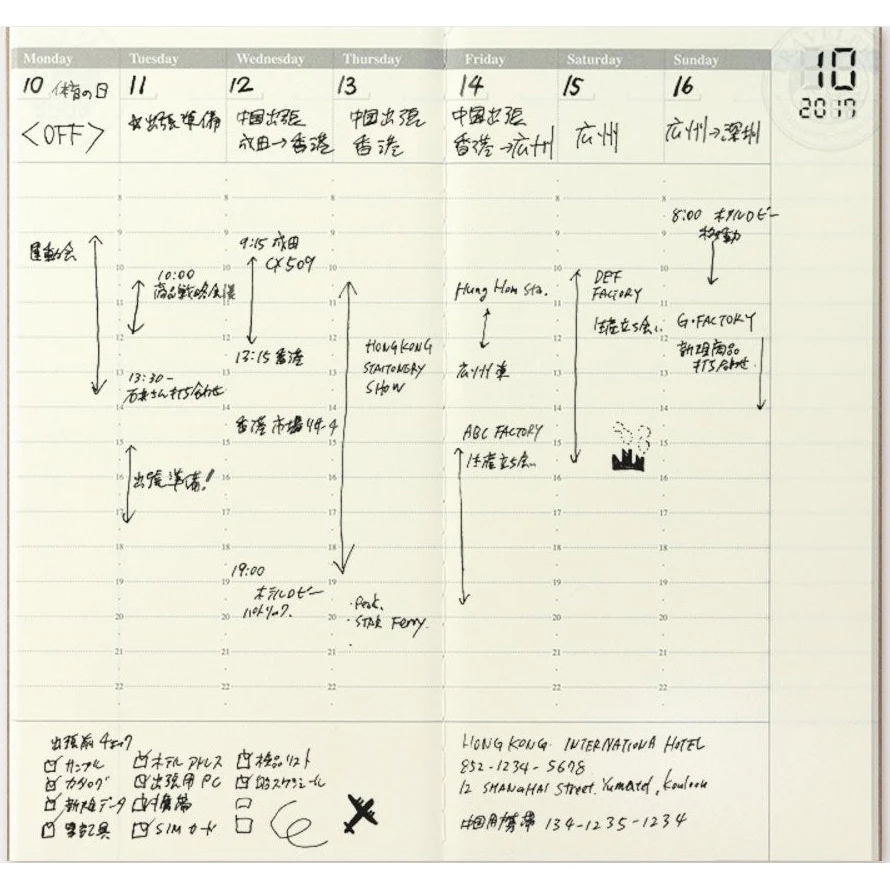 Monday
Tuesday
Wednesday
Thursday
Friday
Saturday
Sunday
10
2017
10 体育の日
<OFF>
運動会
11
出張準備
10:00
商品戦略会議
13:30-
打ち合わせ
出張準備!
12
中国出張
成田→香港
9:15 成田
CX509
13:15 香港
香港市場リサーチ
19:00
ホテルロビー
パトリック
13
中国出張
香港
HONGKONG
STAITONERY
SHOW
・Peak.
・STAR Ferry.
14
中国出張
香港→広州
Hung Hom Sta.
広州東
ABC FACTORY
生産立ち会い
15
広州
DEF
FACTORY
生産立ち会い
16
広州→深圳
8:00 ホテルロビー
移動
G・FACTORY
新規商品
打ち合わせ
8
9
10
11
12
13
14
15
16
17
18
19
20
21
22
出張前チェック
サンプル
カタログ
新規データ
筆記具
ホテルアドレス
出張用PC
携帯
SIMカード
検品リスト
スケジュール
HONG KONG INTERNATIONA HOTEL
852-1234-5678
12 SHANGHAI Street. Yumatei, Kouloon
中国用携帯 134-1235-1234